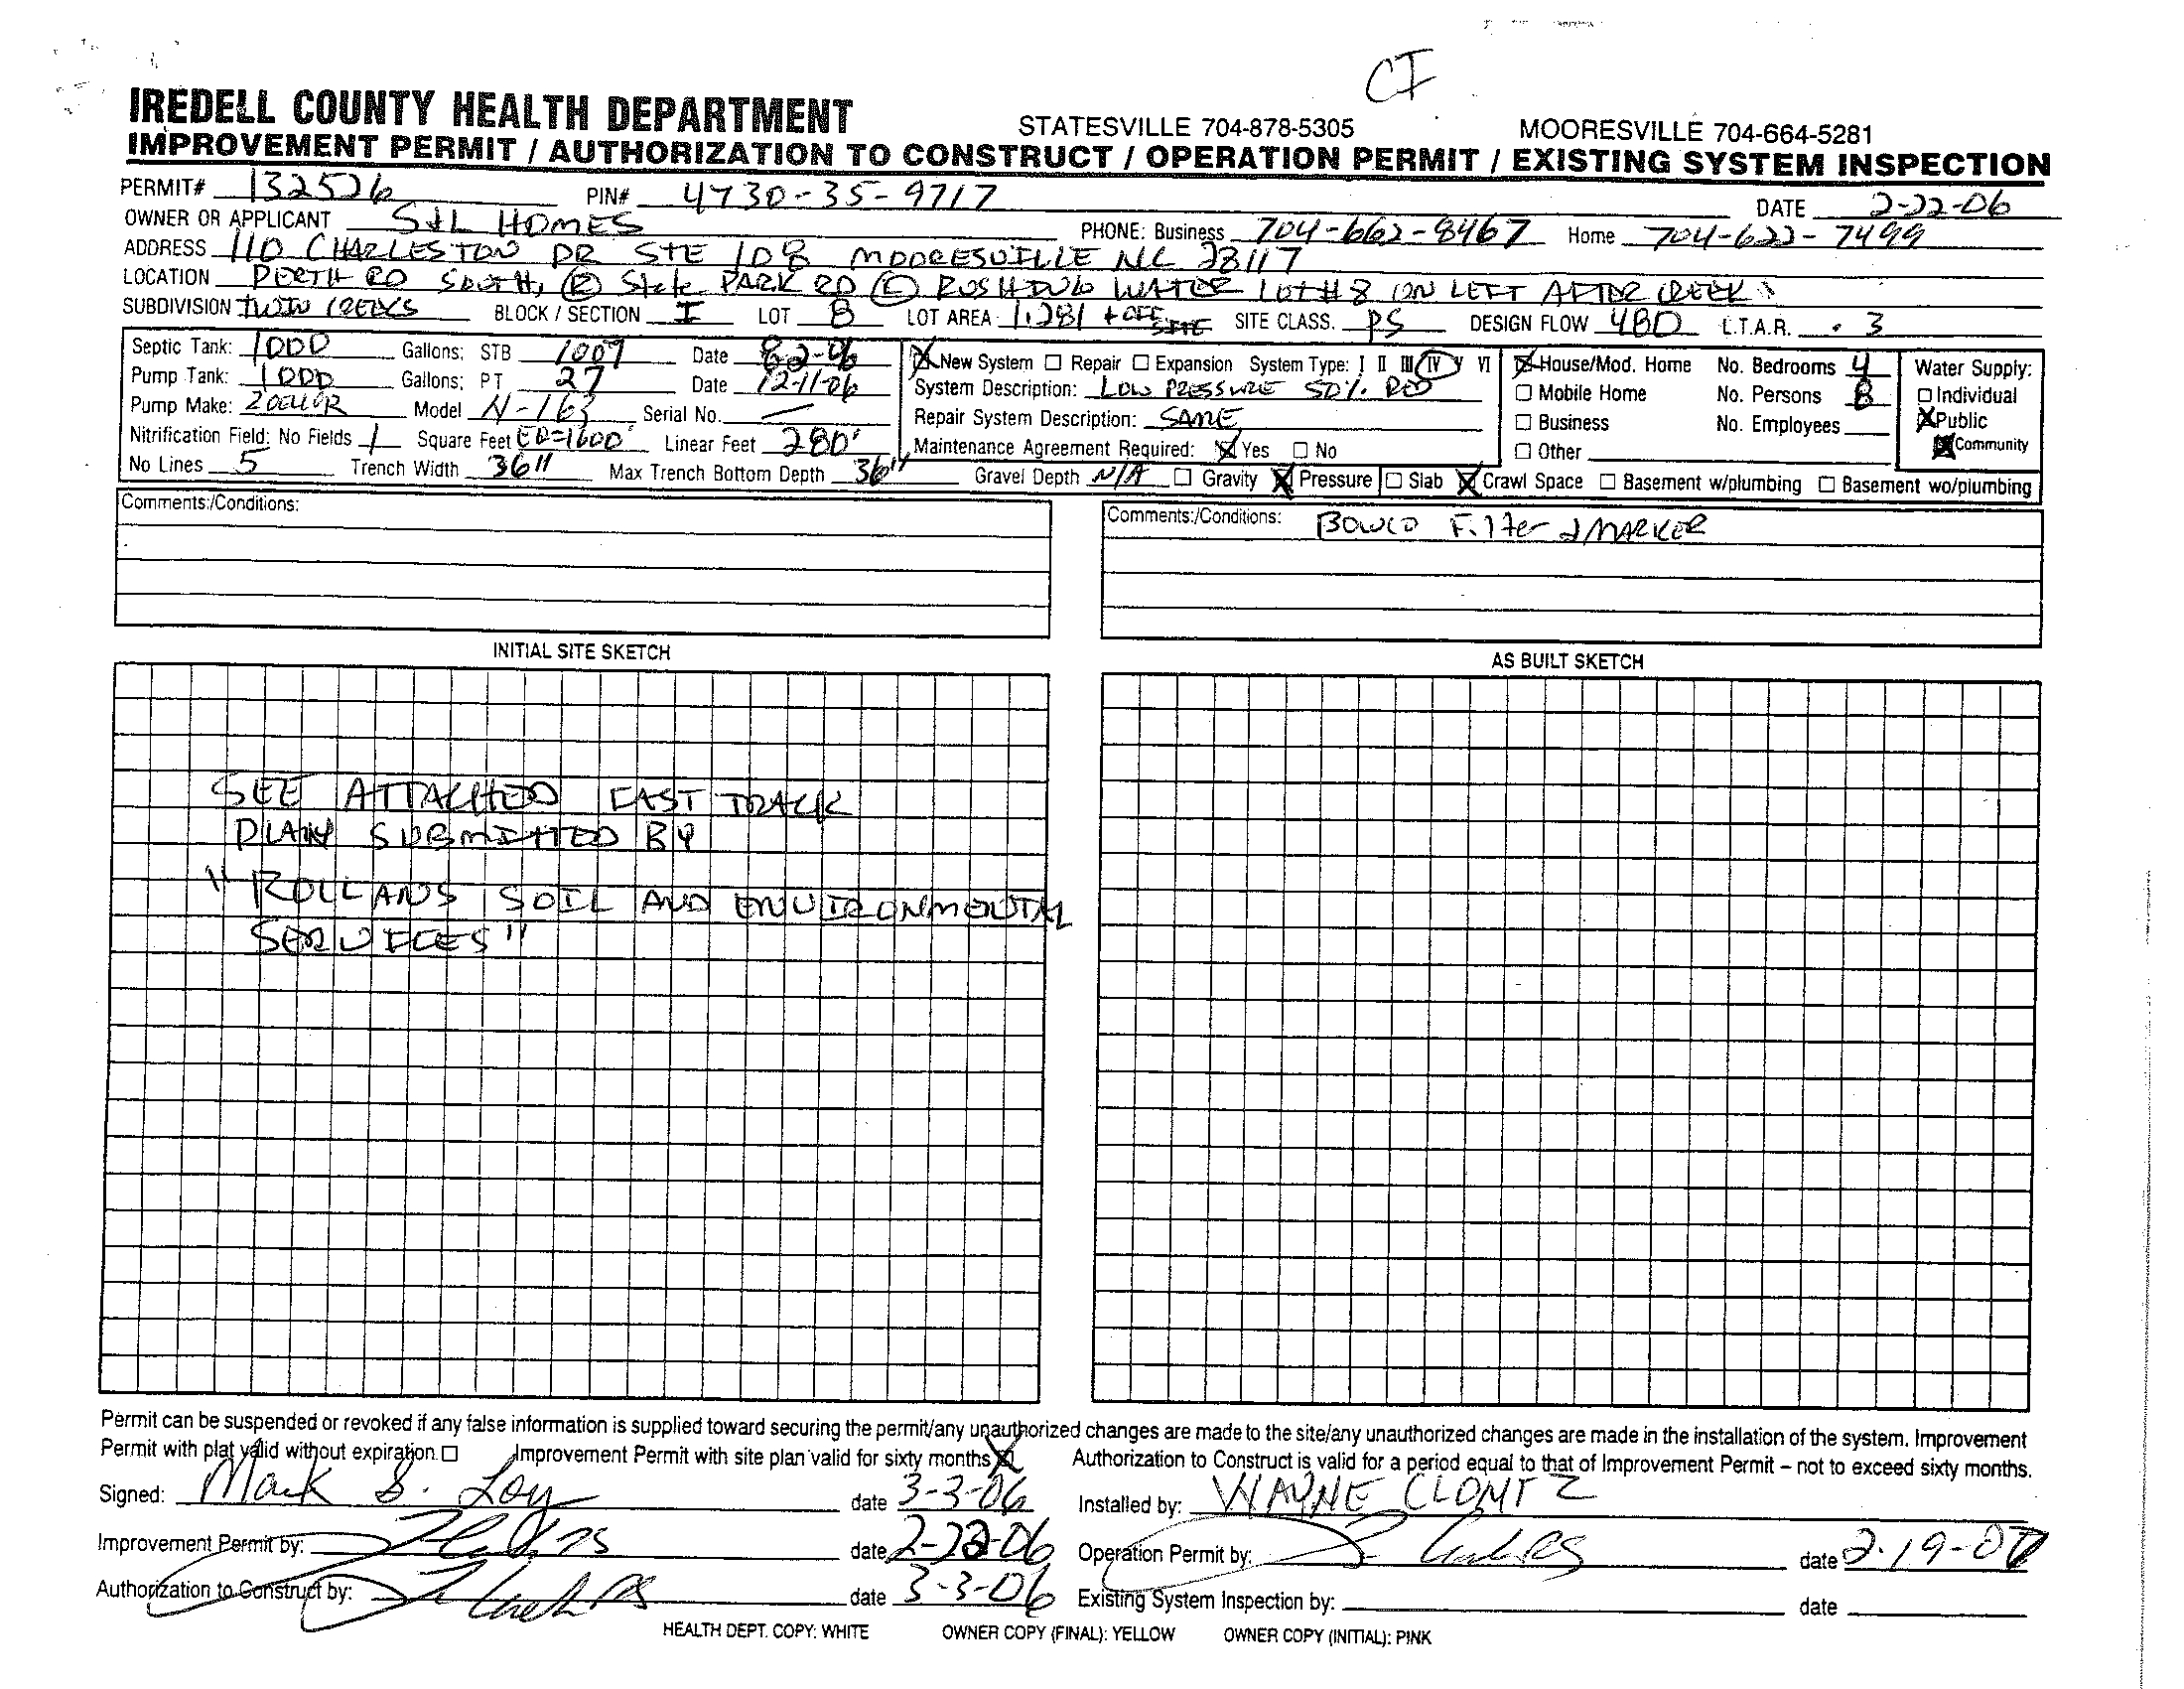 CI
IREDELL COUNTY HEALTH DEPARTMENT
STATESVILLE 704-878-5305 MOORESVILLE 704-664-5281
IMPROVEMENT PERMIT / AUTHORIZATION TO CONSTRUCT / OPERATION PERMIT / EXISTING SYSTEM INSPECTION
PERMIT# 132526 PIN# 4730-35-9717 DATE 2-22-06
OWNER OR APPLICANT S+L HOMES PHONE: Business 704-662-8467 Home 704-622-7499
ADDRESS 110 CHARLESTON DR STE 108 MOORESVILLE NC 28117
LOCATION PERTH RD SOUTH, (R) State PARK RD (L) RUSHING WATER LOT #8 ON LEFT AFTER CREEK
SUBDIVISION TWIN CREEKS BLOCK / SECTION I LOT 8 LOT AREA 1.281 + OFF SITE SITE CLASS. PS DESIGN FLOW 480 L.T.A.R. .3
Septic Tank: 1000 Gallons; STB 1007 Date 8-2-06
Pump Tank: 1000 Gallons; PT 27 Date 12-11-06
Pump Make: ZOELLOR Model N-163 Serial No. —
Nitrification Field: No Fields 1 Square Feet EQ=1600' Linear Feet 280'
No Lines 5 Trench Width 36" Max Trench Bottom Depth 36" Gravel Depth N/A Gravity Pressure Slab Crawl Space Basement w/plumbing Basement wo/plumbing
New System Repair Expansion System Type: I II III IV V VI
System Description: LOW PRESSURE 50% RED
Repair System Description: SAME
Maintenance Agreement Required: Yes No
House/Mod. Home No. Bedrooms 4
Mobile Home No. Persons 8
Business No. Employees
Other
Water Supply:
Individual
Public
Community
Comments:/Conditions:
Comments:/Conditions: BOWCO Filter & MARKER
INITIAL SITE SKETCH
AS BUILT SKETCH
SEE ATTACHED FAST TRACK
PLAN SUBMITTED BY
"ROLLANS SOIL AND ENVIRONMENTAL
SERVICES"
Permit can be suspended or revoked if any false information is supplied toward securing the permit/any unauthorized changes are made to the site/any unauthorized changes are made in the installation of the system. Improvement
Permit with plat valid without expiration. Improvement Permit with site plan valid for sixty months Authorization to Construct is valid for a period equal to that of Improvement Permit – not to exceed sixty months.
Signed: Mark S. Loy date 3-3-06 Installed by: WAYNE CLONTZ
Improvement Permit by: date 2-22-06 Operation Permit by: date 2-19-07
Authorization to Construct by: date 3-3-06 Existing System Inspection by: date
HEALTH DEPT. COPY: WHITE OWNER COPY (FINAL): YELLOW OWNER COPY (INITIAL): PINK